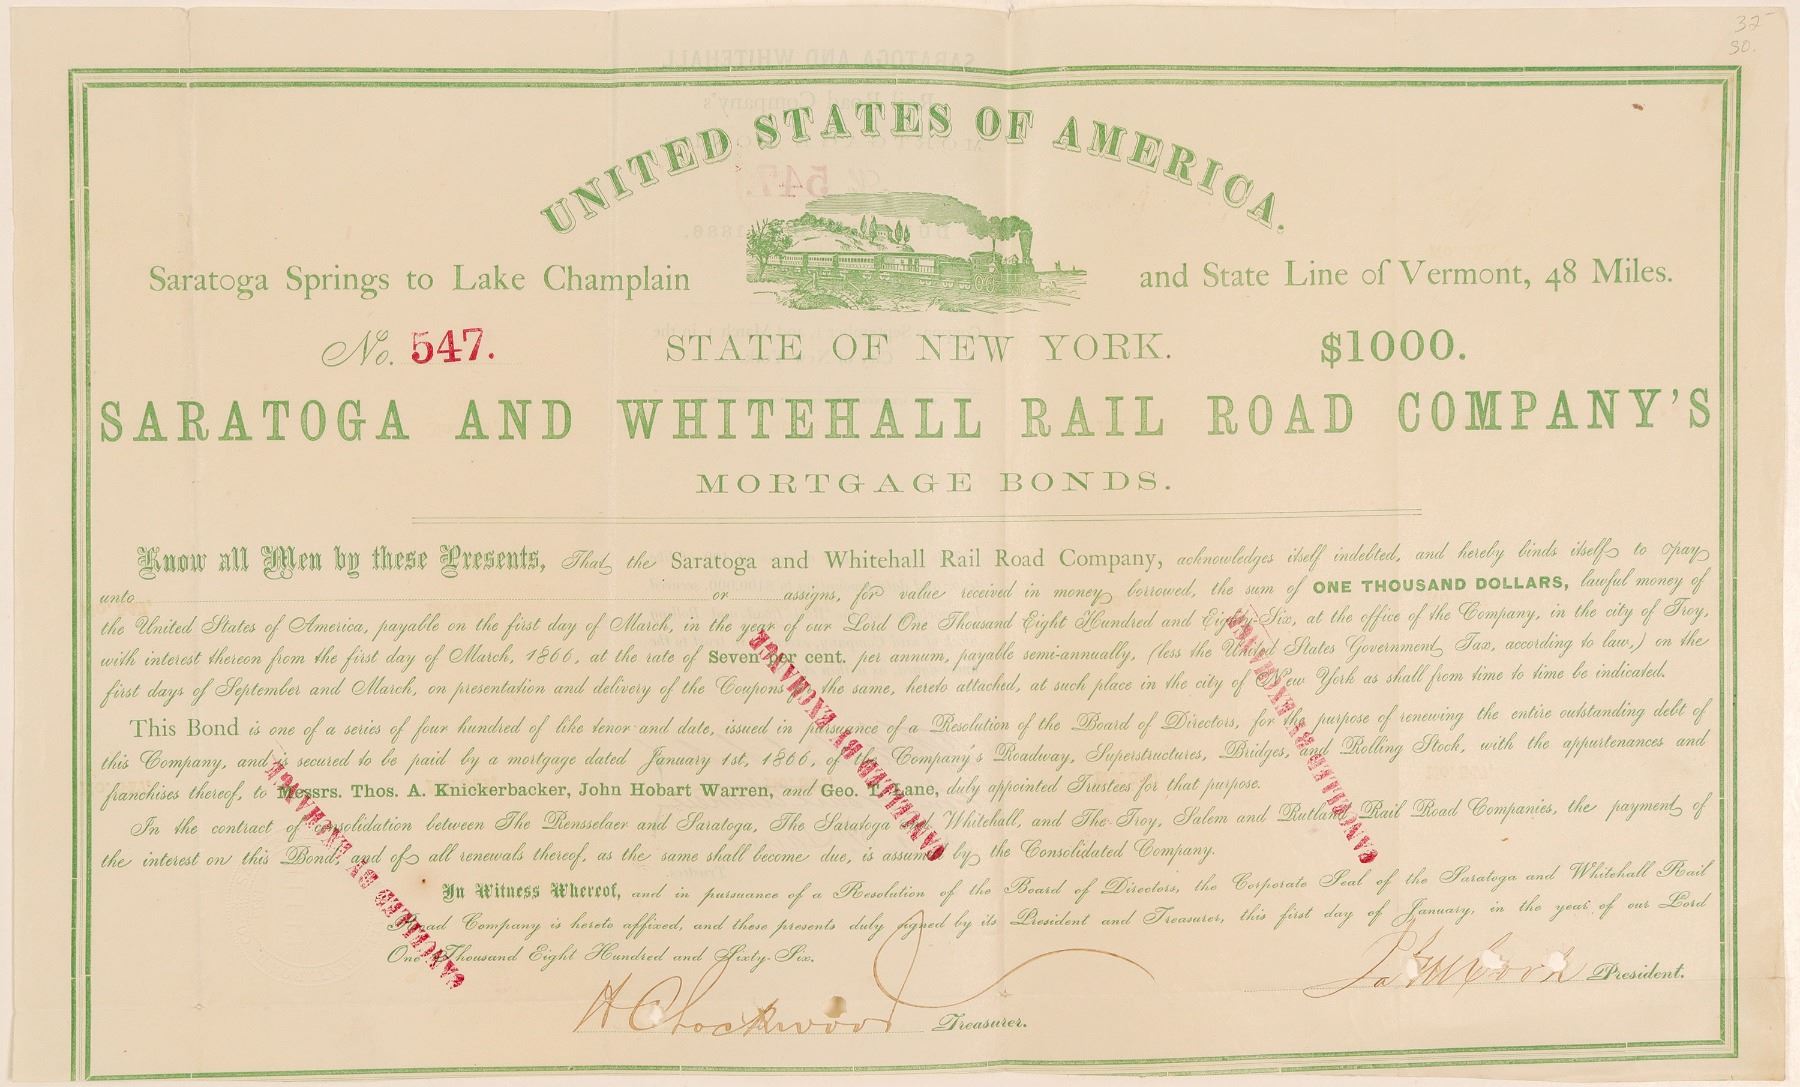 32
30.
UNITED STATES OF AMERICA.
Saratoga Springs to Lake Champlain and State Line of Vermont, 48 Miles.
No. 547. STATE OF NEW YORK. $1000.
SARATOGA AND WHITEHALL RAIL ROAD COMPANY'S
MORTGAGE BONDS.
Know all Men by these Presents, That the Saratoga and Whitehall Rail Road Company, acknowledges itself indebted, and hereby binds itself to pay
unto or assigns, for value received in money borrowed, the sum of ONE THOUSAND DOLLARS, lawful money of
the United States of America, payable on the first day of March, in the year of our Lord One Thousand Eight Hundred and Eighty-Six, at the office of the Company, in the city of Troy,
with interest thereon from the first day of March, 1866, at the rate of Seven per cent. per annum, payable semi-annually, (less the United States Government Tax, according to law,) on the
first days of September and March, on presentation and delivery of the Coupons for the same, hereto attached, at such place in the city of New York as shall from time to time be indicated.
This Bond is one of a series of four hundred of like tenor and date, issued in pursuance of a Resolution of the Board of Directors, for the purpose of renewing the entire outstanding debt of
this Company, and is secured to be paid by a mortgage dated January 1st, 1866, of the Company's Roadway, Superstructures, Bridges, and Rolling Stock, with the appurtenances and
franchises thereof, to Messrs. Thos. A. Knickerbacker, John Hobart Warren, and Geo. T. Lane, duly appointed Trustees for that purpose.
In the contract of consolidation between The Rensselaer and Saratoga, The Saratoga and Whitehall, and The Troy, Salem and Rutland Rail Road Companies, the payment of
the interest on this Bond, and of all renewals thereof, as the same shall become due, is assumed by the Consolidated Company.
In Witness Whereof, and in pursuance of a Resolution of the Board of Directors, the Corporate Seal of the Saratoga and Whitehall Rail
Road Company is hereto affixed, and these presents duly signed by its President and Treasurer, this first day of January, in the year of our Lord
One Thousand Eight Hundred and Sixty-Six.
President.
H C Lockwood Treasurer.
CANCELLED BY EXCHANGE
CANCELLED BY EXCHANGE
CANCELLED BY EXCHANGE